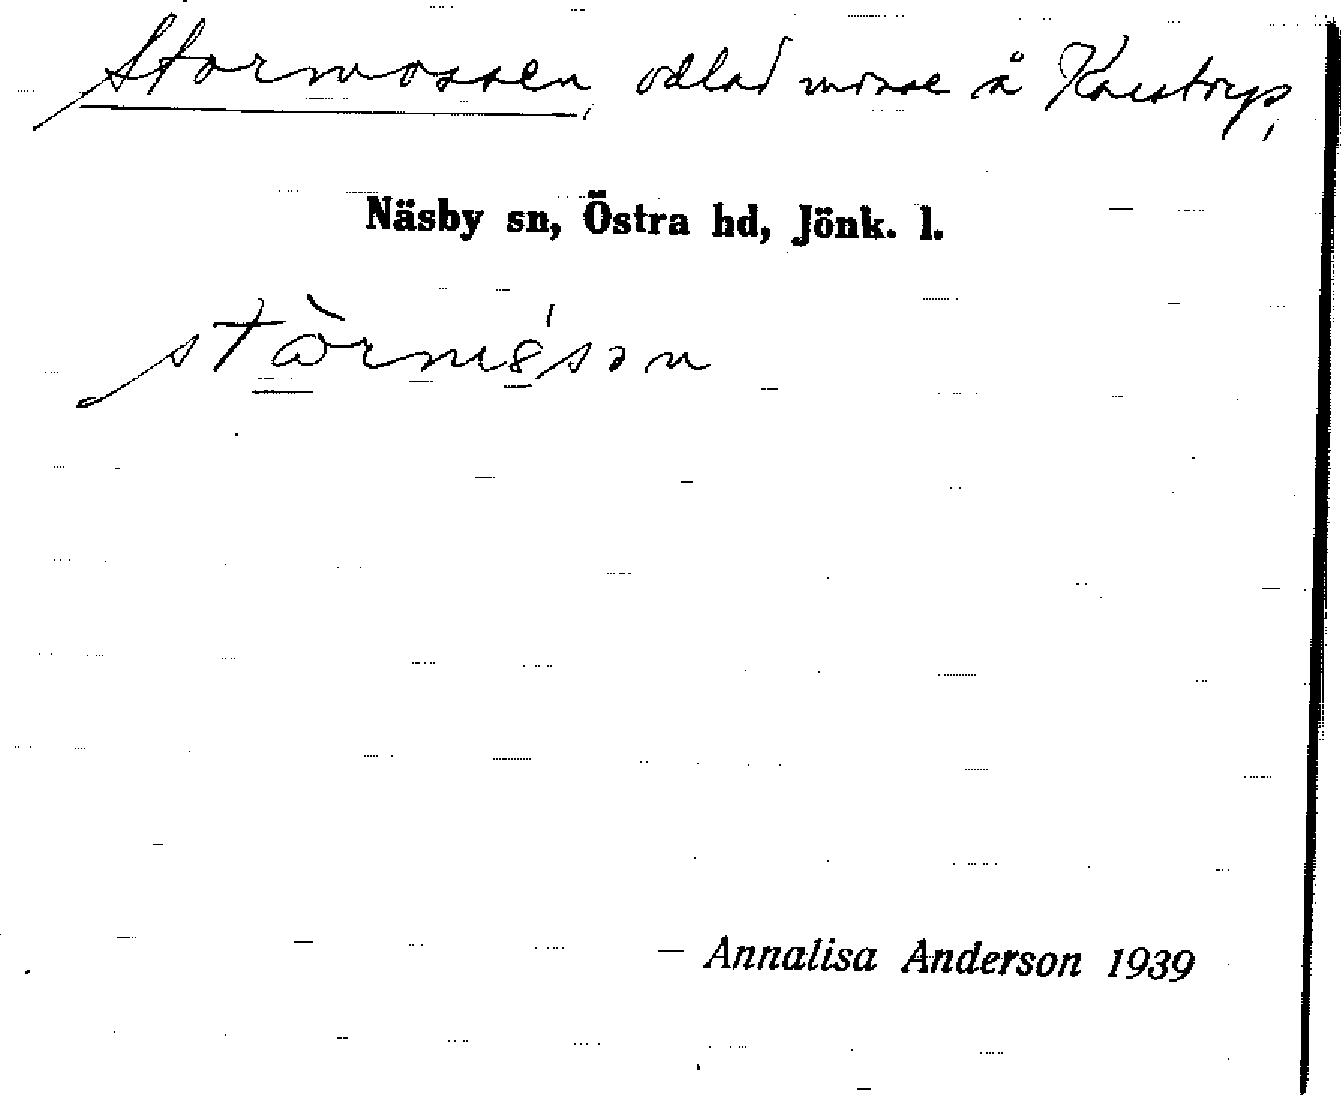 Stormossen, odlad mosse å Knestorp,
Näsby sn, Östra hd, Jönk. l.
stòrmɞ́son
— Annalisa Anderson 1939